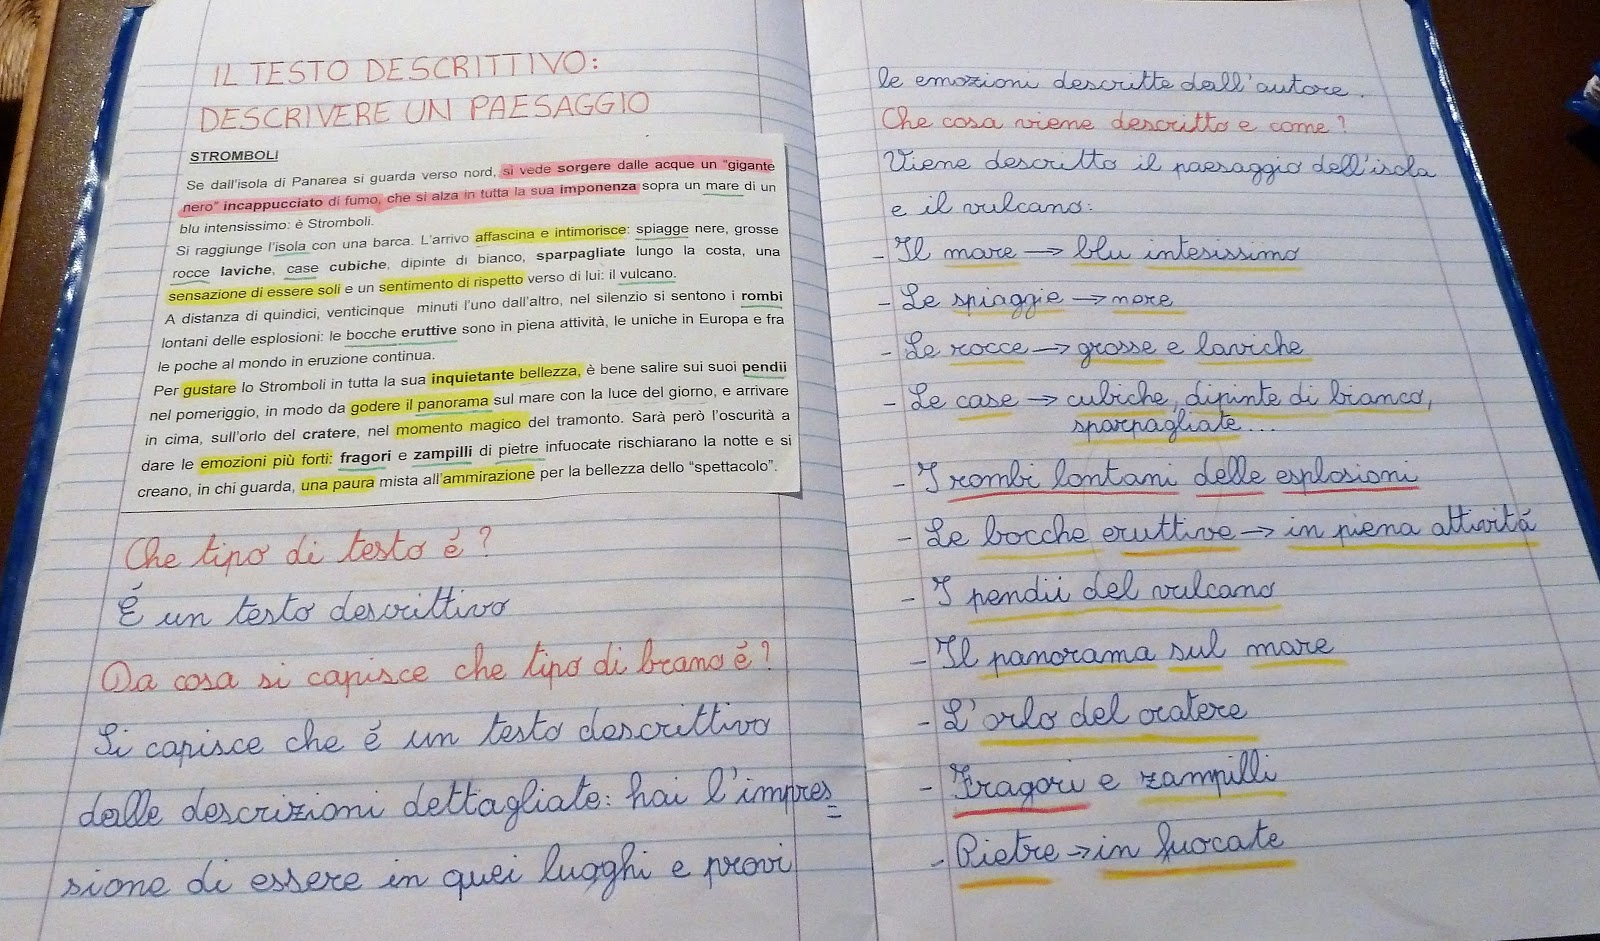 IL TESTO DESCRITTIVO:
DESCRIVERE UN PAESAGGIO
STROMBOLI
Se dall'isola di Panarea si guarda verso nord, si vede sorgere dalle acque un "gigante
nero" incappucciato di fumo, che si alza in tutta la sua imponenza sopra un mare di un
blu intensissimo: è Stromboli.
Si raggiunge l'isola con una barca. L'arrivo affascina e intimorisce: spiagge nere, grosse
rocce laviche, case cubiche, dipinte di bianco, sparpagliate lungo la costa, una
sensazione di essere soli e un sentimento di rispetto verso di lui: il vulcano.
A distanza di quindici, venticinque minuti l'uno dall'altro, nel silenzio si sentono i rombi
lontani delle esplosioni: le bocche eruttive sono in piena attività, le uniche in Europa e fra
le poche al mondo in eruzione continua.
Per gustare lo Stromboli in tutta la sua inquietante bellezza, è bene salire sui suoi pendii
nel pomeriggio, in modo da godere il panorama sul mare con la luce del giorno, e arrivare
in cima, sull'orlo del cratere, nel momento magico del tramonto. Sarà però l'oscurità a
dare le emozioni più forti: fragori e zampilli di pietre infuocate rischiarano la notte e si
creano, in chi guarda, una paura mista all'ammirazione per la bellezza dello "spettacolo".
Che tipo di testo é?
É un testo descrittivo
Da cosa si capisce che tipo di brano é?
Si capisce che é un testo descrittivo
dalle descrizioni dettagliate: hai l'impres=
sione di essere in quei luoghi e provi
le emozioni descritte dall'autore.
Che cosa viene descritto e come?
Viene descritto il paesaggio dell'isola
e il vulcano:
- Il mare → blu intesissimo
- Le spiaggie → nere
- Le rocce → grosse e laviche
- Le case → cubiche, dipinte di bianco,
sparpagliate...
- I rombi lontani delle esplosioni
- Le bocche eruttive → in piena attivitá
- I pendii del vulcano
- Il panorama sul mare
- L'orlo del cratere
- Fragori e zampilli
- Pietre → in fuocate